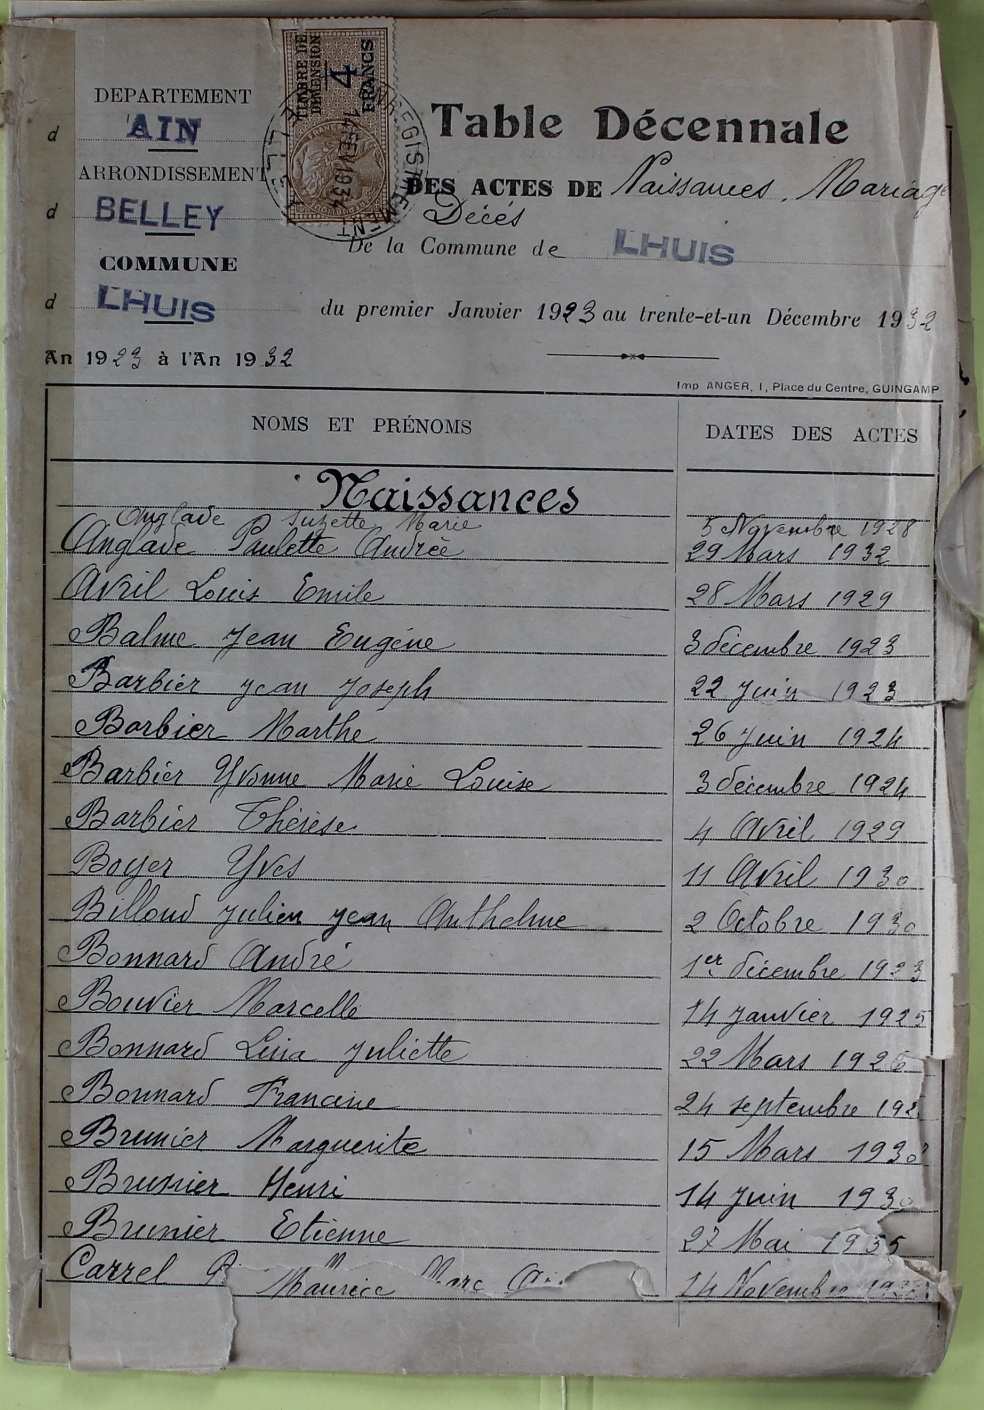 DEPARTEMENT
d AIN
ARRONDISSEMENT
d BELLEY
COMMUNE
d LHUIS
An 1923 à l'An 1932
TIMBRE DE DIMENSION
4 FRANCS
14 FEV 1934
Table Décennale
DES ACTES DE Naissances, Mariage
Décés
De la Commune de LHUIS
du premier Janvier 1923 au trente-et-un Décembre 1932
Imp ANGER, 1, Place du Centre, GUINGAMP
NOMS ET PRÉNOMS DATES DES ACTES
Naissances
Anglade Suzette Marie 5 Novembre 1928
Anglade Paulette Andrée 29 Mars 1932
Avril Louis Emile 28 Mars 1929
Balme Jean Eugéne 3 décembre 1923
Barbier Jean Joseph 22 Juin 1923
Barbier Marthe 26 Juin 1924
Barbier Yvonne Marie Louise 3 décembre 1924
Barbier Thérèse 4 Avril 1929
Boyer Yves 11 Avril 1930
Billoud Julien Jean Anthelme 2 Octobre 1930
Bonnard André 1er décembre 1923
Bouvier Marcelle 14 Janvier 1925
Bonnard Léna Juliette 22 Mars 1926
Bonnard Francine 24 septembre 192
Brunier Marguerite 15 Mars 1930
Brunier Henri 14 Juin 1930
Brunier Etienne 27 Mai
Carrel Maurice Marc 14 Novembre